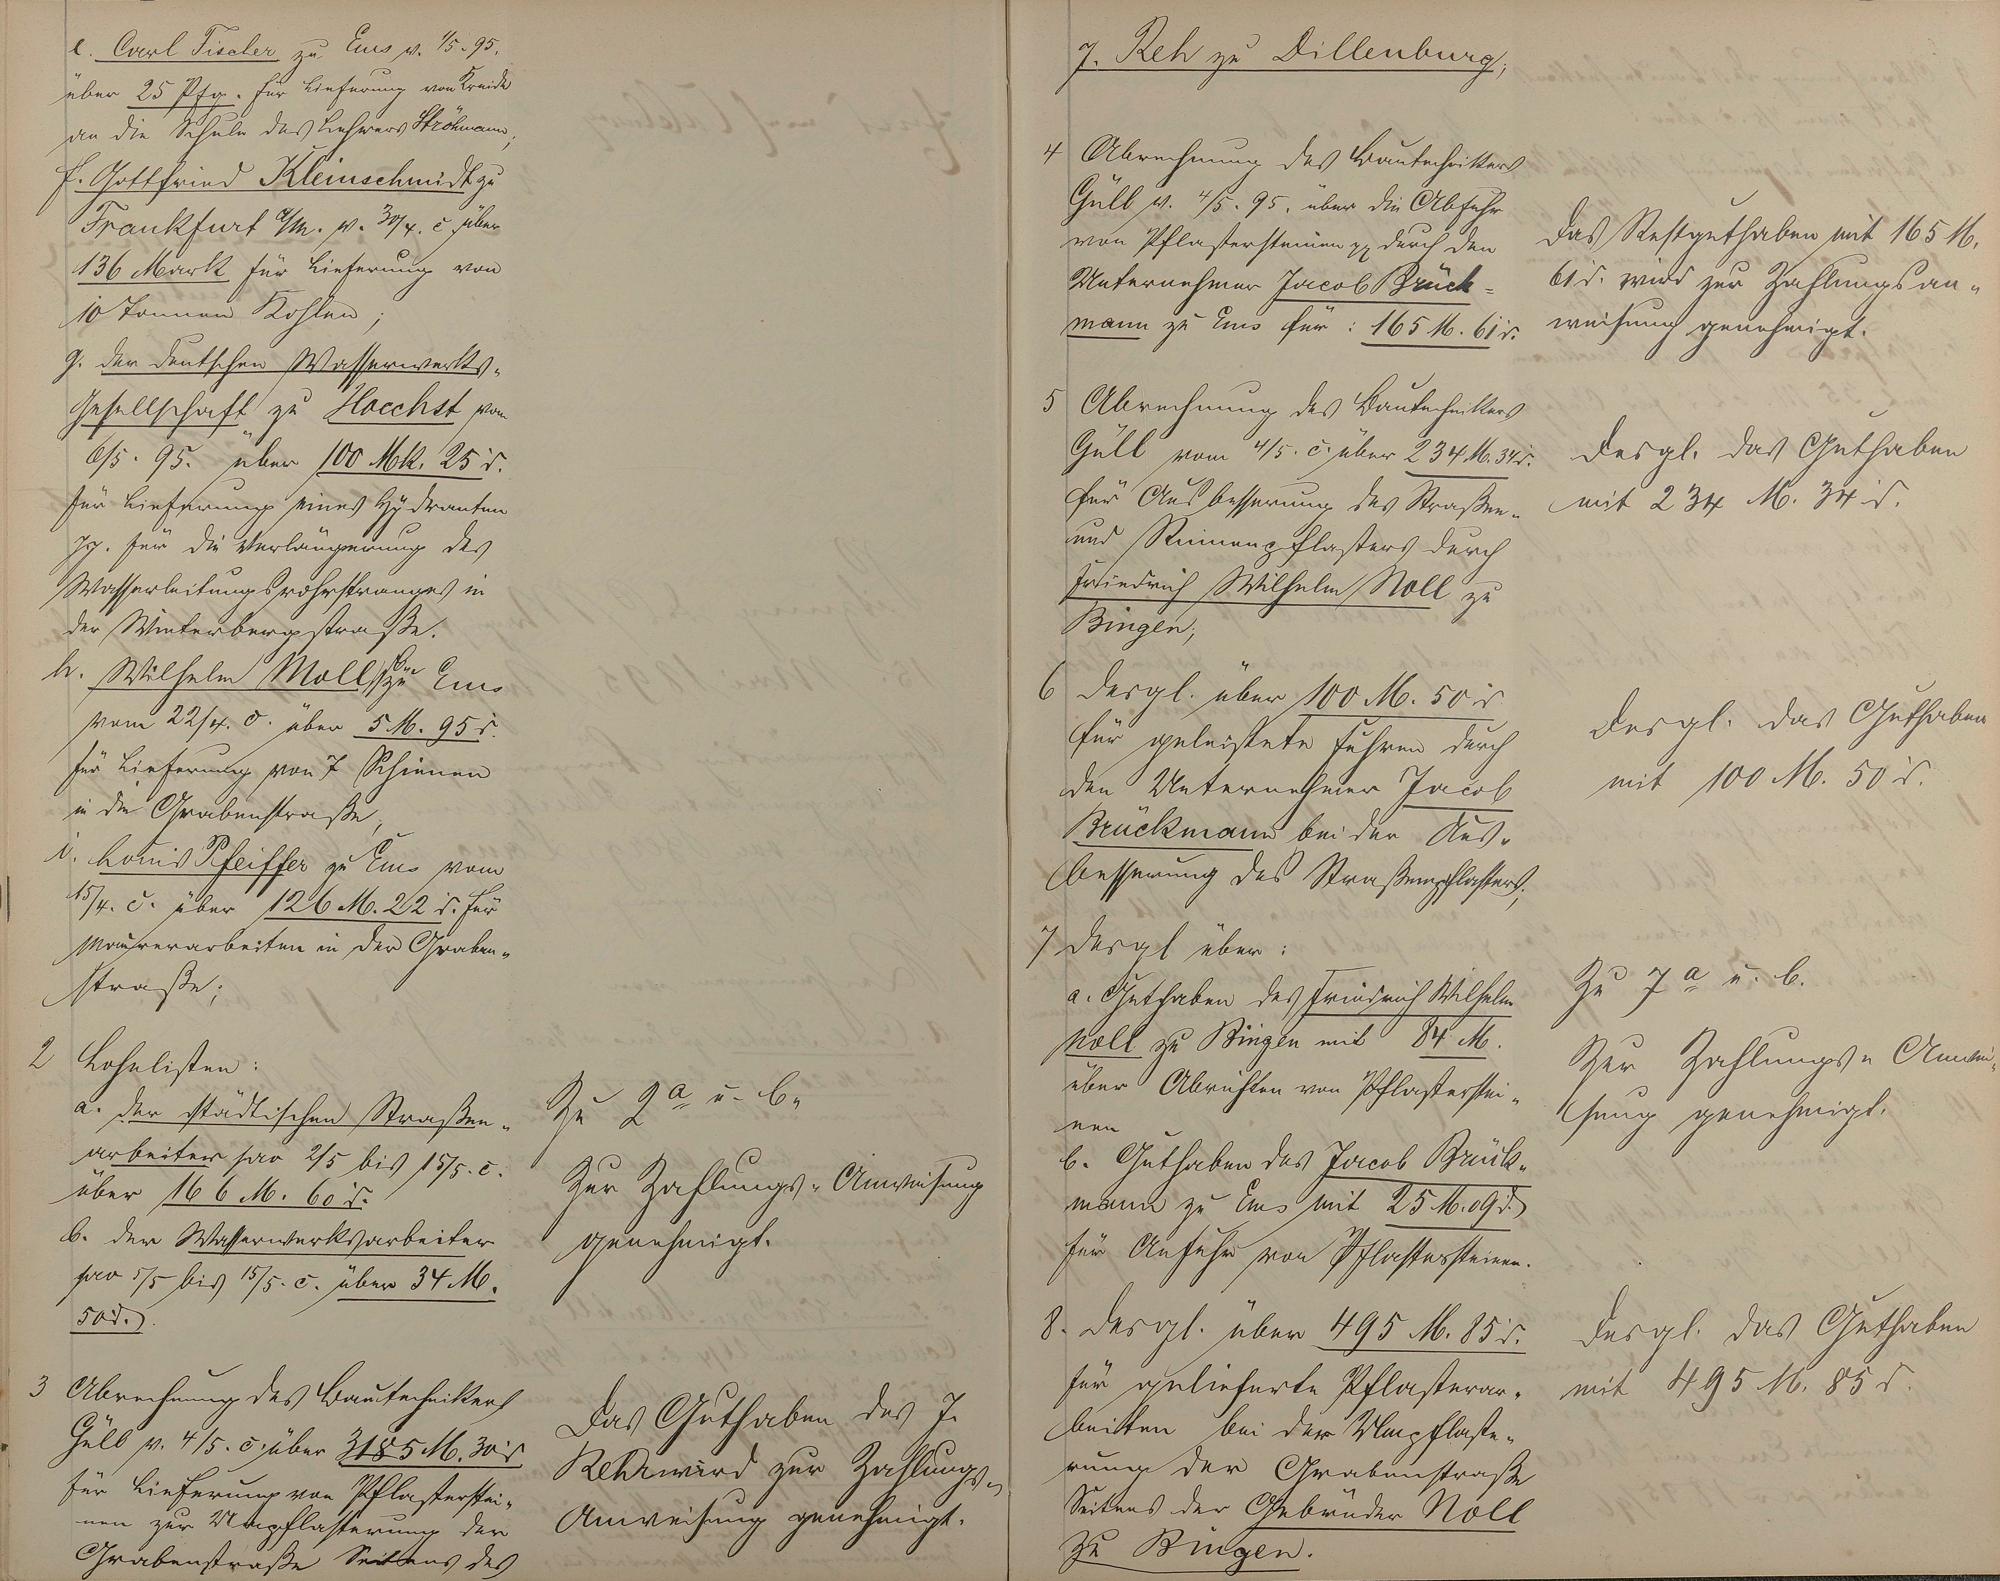 e. Carl Fischer zu Ems v. 1/5. 95.
über 25 Pfg. für Lieferung von Kreide
an die Schule des Lehrers Ströhmann;
f. Gottfried Kleinschmidt zu
Frankfurt a/M. v. 30/4. c. über
136 Mark für Lieferung von
10 Tonnen Kohlen;
g. der deutschen Wasserwerks-
Gesellschaft zu Hoechst vom
6/5. 95. über 100 Mk. 25 d.
für Lieferung eines Hydranten
pp. für die Verlängerung des
Wasserleitungsrohrstranges in
der Winterbergstraße.
h. Wilhelm Moll zu Ems
vom 22/4. c. über 5 M. 95 d.
für Lieferung von 7 Schienen
in die Grabenstraße,
i. Louis Pfeiffer zu Ems vom
15/4. c. über 126 M. 22 d. für
Maurerarbeiten in der Graben-
straße;
2 Lohnlisten:
a. der städtischen Straßen-
arbeiter pro 2/5 bis 15/5. c.
über 166 M. 60 d.
b. der Wasserwerksarbeiter
pro 5/5 bis 15/5. c. über 34 M.
50 d.
Zu 2 a u. b.
Zur Zahlungs-Anweisung
genehmigt.
3 Abrechnung des Bautechnikers
Güll v. 4/5. c. über 3185 M. 30 d
für Lieferung von Pflasterstei-
nen zur Umpflasterung der
Grabenstraße Seitens des
Das Guthaben des J.
Reh wird zur Zahlungs-
Anweisung genehmigt.
J. Reh zu Dillenburg;
4 Abrechnung des Bautechnikers
Güll v. 4/5. 95. über die Abfuhr
von Pflastersteinen pp durch den
Unternehmer Jacob Brück-
mann zu Ems für: 165 M. 61 d.
Das Restguthaben mit 165 M.
61 d. wird zur Zahlungsan-
weisung genehmigt.
5 Abrechnung des Bautechnikers
Güll vom 4/5. c. über 234 M. 34 d.
für Ausbesserung des Straßen-
und Rinnenpflasters durch
Friedrich Wilhelm Noll zu
Bingen;
Desgl. das Guthaben
mit 234 M. 34 d.
6 Desgl. über 100 M. 50 d
für geleistete Fuhren durch
den Unternehmer Jacob
Brückmann bei der Aus-
besserung des Straßenpflasters;
Desgl. das Guthaben
mit 100 M. 50 d.
7 Desgl über:
a. Guthaben des Friedrich Wilhelm
Noll zu Bingen mit 84 M.
über Abrichten von Pflasterstei-
nen
b. Guthaben des Jacob Brück-
mann zu Ems mit 25 M. 09 d.
für Anfuhr von Pflastersteinen.
Zu 7 a u. b.
Zur Zahlungs-Anwei-
sung genehmigt.
8. Desgl. über 495 M. 85 d.
für gelieferte Pflasterar-
beiten bei der Umpflaste-
rung der Grabenstraße
Seitens der Gebrüder Noll
zu Bingen.
Desgl. das Guthaben
mit 495 M. 85 d.